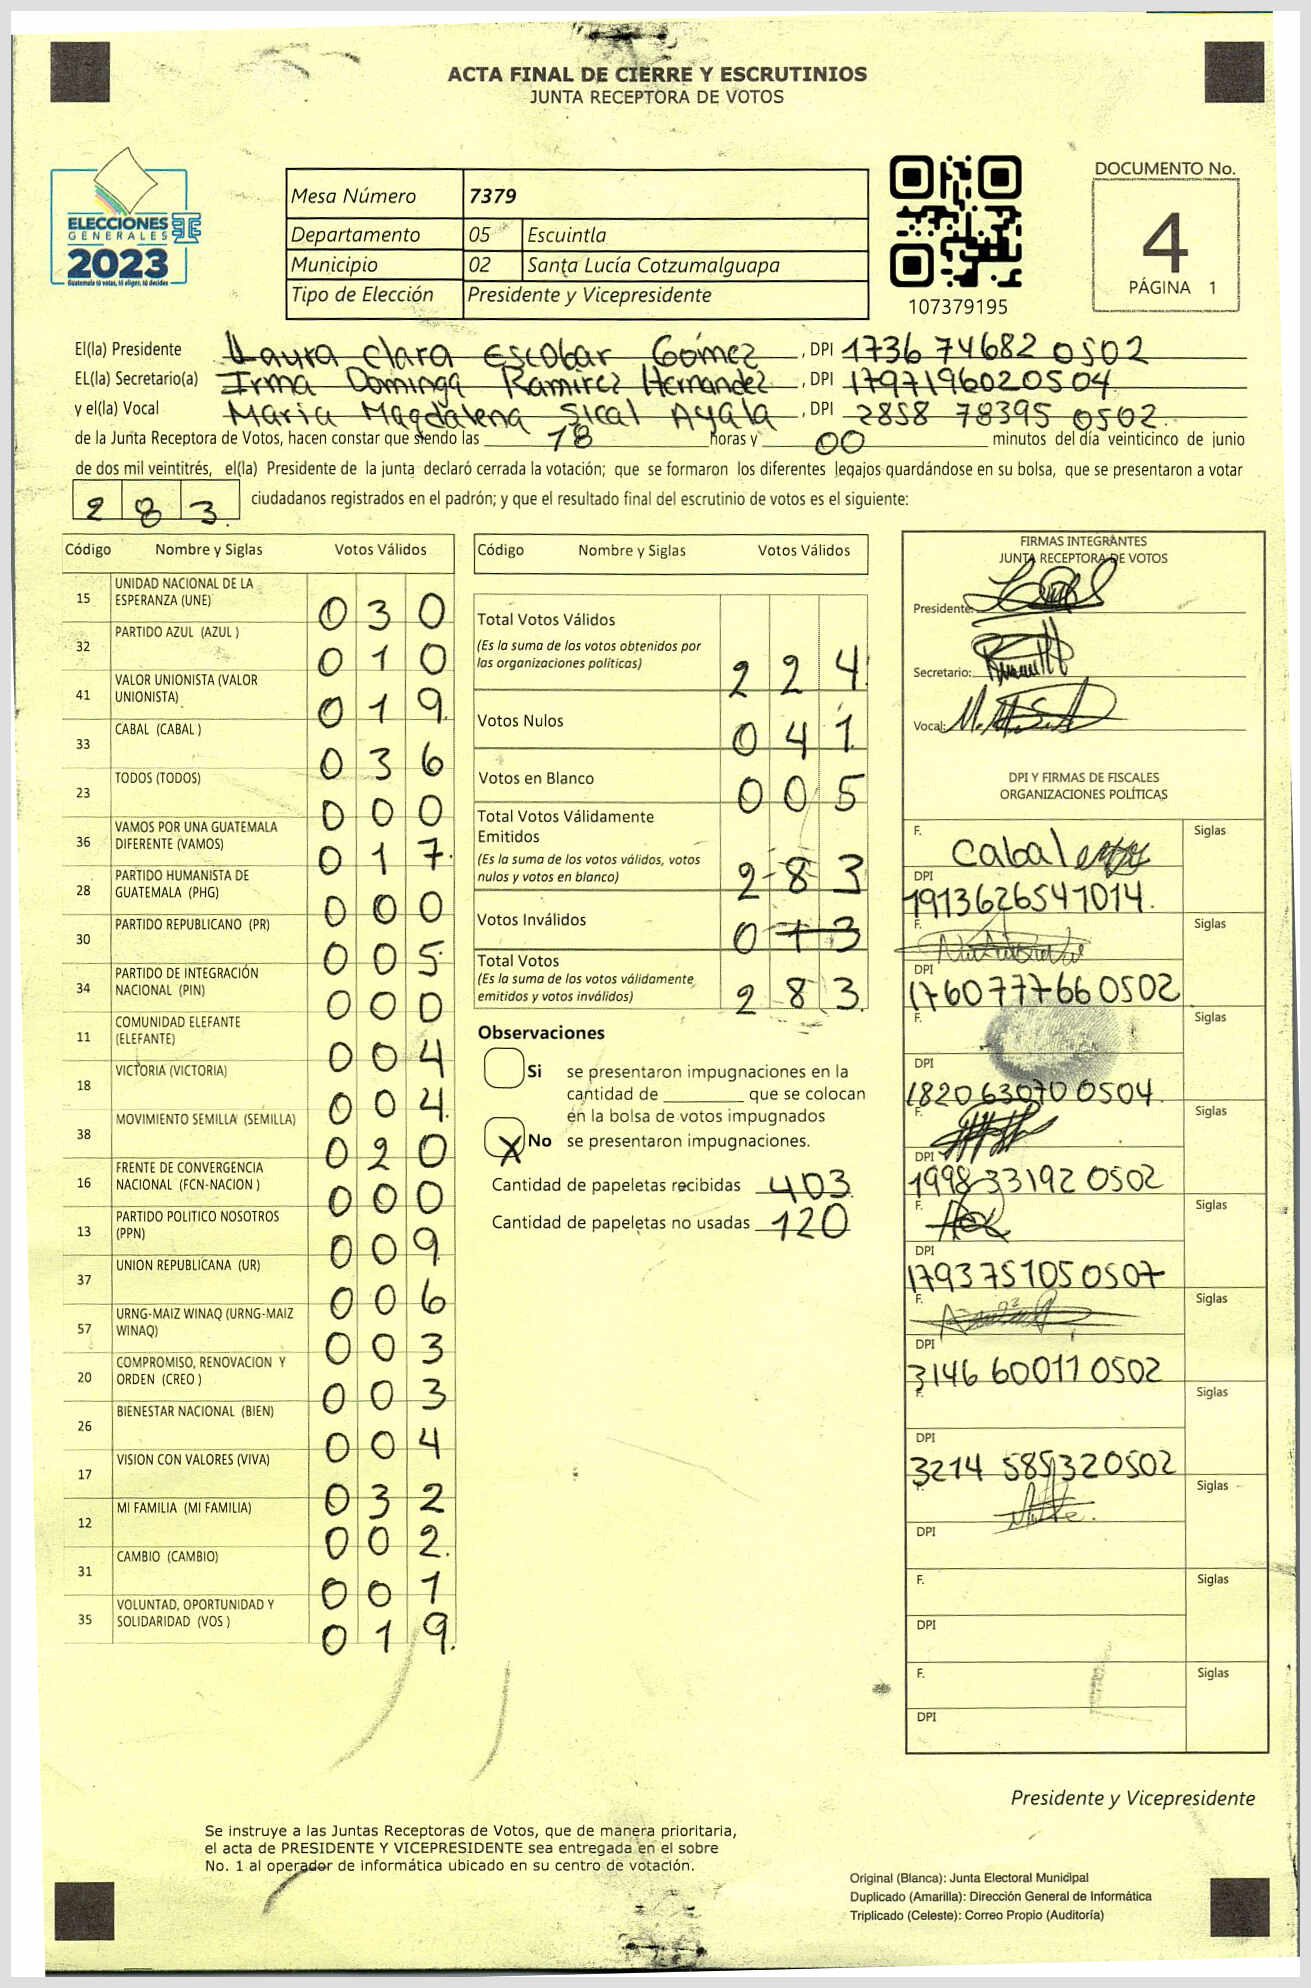 ACTA FINAL DE CIERRE Y ESCRUTINIOS
JUNTA RECEPTORA DE VOTOS
ELECCIONES
GENERALES
2023
Guatemala tú votas, tú eliges, tú decides
Mesa Número 7379
Departamento 05 Escuintla
Municipio 02 Santa Lucía Cotzumalguapa
Tipo de Elección Presidente y Vicepresidente
107379195
DOCUMENTO No.
4
PÁGINA 1
El(la) Presidente Laura Clara Escobar Gómez , DPI 1736 74682 0502
EL(la) Secretario(a) Irma Dominga Ramirez Hernandez , DPI 1797196020504
y el(la) Vocal Maria Magdalena Sical Ayala , DPI 2858 78395 0502
de la Junta Receptora de Votos, hacen constar que siendo las 18 horas y 00 minutos del día veinticinco de junio
de dos mil veintitrés, el(la) Presidente de la junta declaró cerrada la votación; que se formaron los diferentes legajos guardándose en su bolsa, que se presentaron a votar
283 ciudadanos registrados en el padrón; y que el resultado final del escrutinio de votos es el siguiente:
Código Nombre y Siglas Votos Válidos
15 UNIDAD NACIONAL DE LA ESPERANZA (UNE) 030
32 PARTIDO AZUL (AZUL ) 010
41 VALOR UNIONISTA (VALOR UNIONISTA) 019
33 CABAL (CABAL ) 036
23 TODOS (TODOS) 000
36 VAMOS POR UNA GUATEMALA DIFERENTE (VAMOS) 017
28 PARTIDO HUMANISTA DE GUATEMALA (PHG) 000
30 PARTIDO REPUBLICANO (PR) 005
34 PARTIDO DE INTEGRACIÓN NACIONAL (PIN) 000
11 COMUNIDAD ELEFANTE (ELEFANTE) 004
18 VICTORIA (VICTORIA) 004
38 MOVIMIENTO SEMILLA (SEMILLA) 020
16 FRENTE DE CONVERGENCIA NACIONAL (FCN-NACION ) 000
13 PARTIDO POLITICO NOSOTROS (PPN) 009
37 UNION REPUBLICANA (UR) 006
57 URNG-MAIZ WINAQ (URNG-MAIZ WINAQ) 003
20 COMPROMISO, RENOVACION Y ORDEN (CREO ) 003
26 BIENESTAR NACIONAL (BIEN) 004
17 VISION CON VALORES (VIVA) 032
12 MI FAMILIA (MI FAMILIA) 002
31 CAMBIO (CAMBIO) 001
35 VOLUNTAD, OPORTUNIDAD Y SOLIDARIDAD (VOS ) 019
Código Nombre y Siglas Votos Válidos
Total Votos Válidos
(Es la suma de los votos obtenidos por
las organizaciones políticas) 224
Votos Nulos 041
Votos en Blanco 005
Total Votos Válidamente
Emitidos
(Es la suma de los votos válidos, votos
nulos y votos en blanco) 283
Votos Inválidos 0
Total Votos
(Es la suma de los votos válidamente
emitidos y votos inválidos) 283
Observaciones
Si se presentaron impugnaciones en la
cantidad de ________ que se colocan
en la bolsa de votos impugnados
X No se presentaron impugnaciones.
Cantidad de papeletas recibidas 403
Cantidad de papeletas no usadas 120
FIRMAS INTEGRANTES
JUNTA RECEPTORA DE VOTOS
Presidente:
Secretario:
Vocal:
DPI Y FIRMAS DE FISCALES
ORGANIZACIONES POLÍTICAS
F. Cabal Siglas
DPI 1913626541014
F. Siglas
DPI 176077766 0502
F. Siglas
DPI 182063070 0504
F. Siglas
DPI 1998 33192 0502
F. Siglas
DPI 1793751050507
F. Siglas
DPI 3146 60011 0502
F. Siglas
DPI 3214 58532 0502
F. Siglas
DPI
F. Siglas
DPI
F. Siglas
DPI
Presidente y Vicepresidente
Se instruye a las Juntas Receptoras de Votos, que de manera prioritaria,
el acta de PRESIDENTE Y VICEPRESIDENTE sea entregada en el sobre
No. 1 al operador de informática ubicado en su centro de votación.
Original (Blanca): Junta Electoral Municipal
Duplicado (Amarilla): Dirección General de Informática
Triplicado (Celeste): Correo Propio (Auditoría)